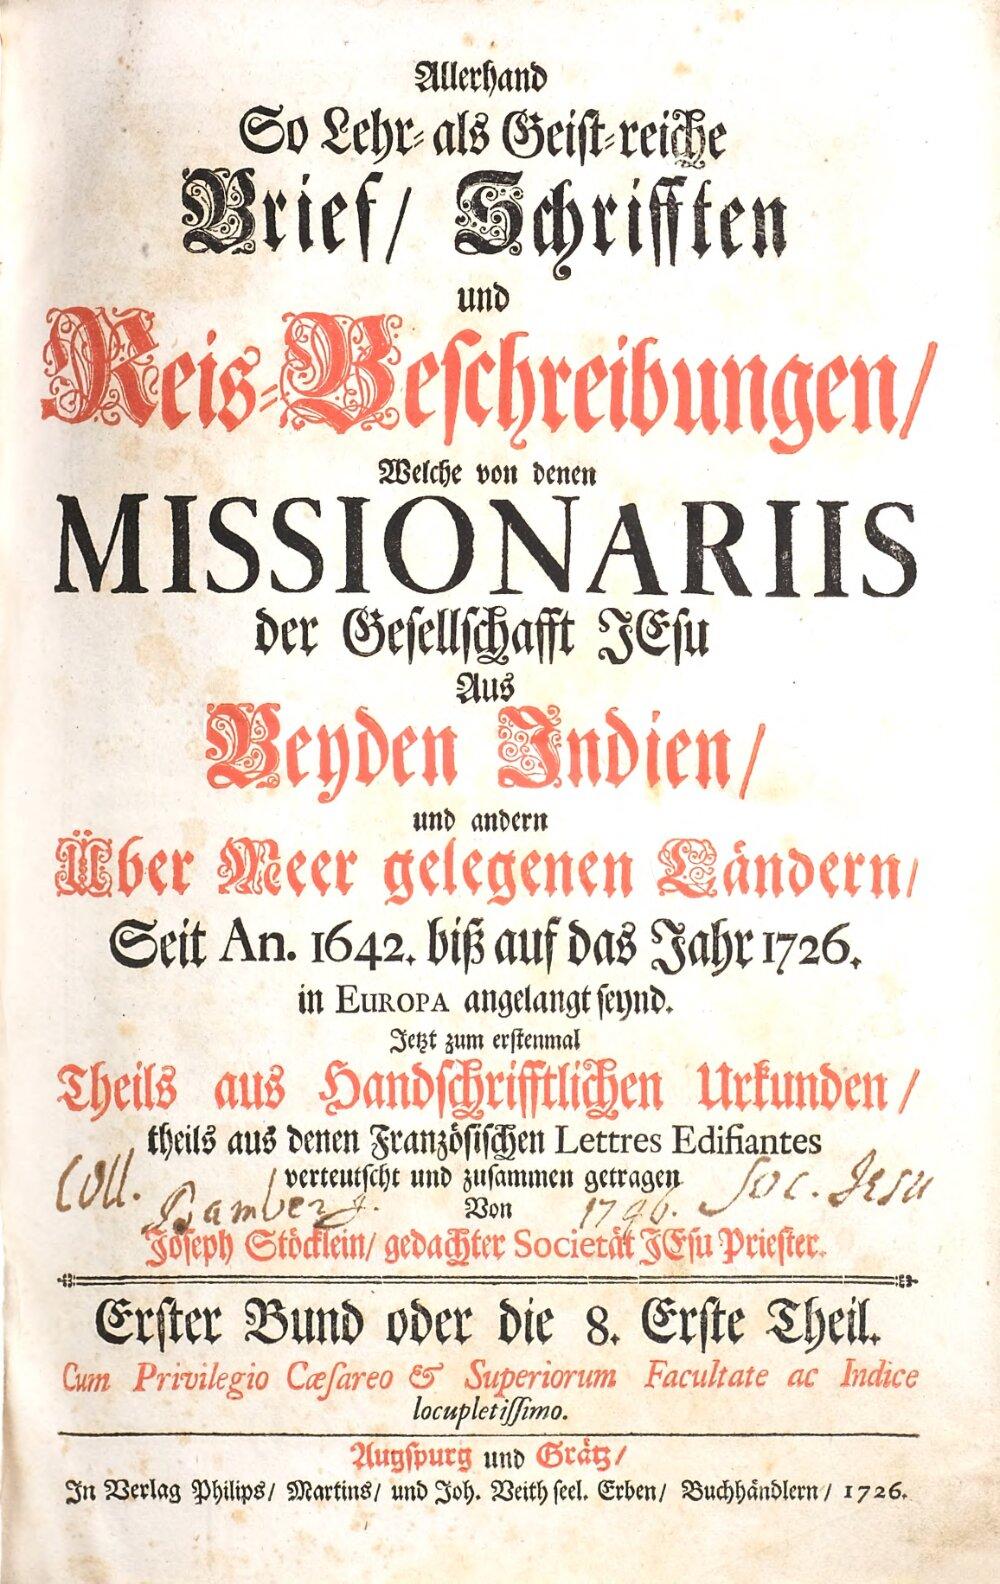 Allerhand
So Lehr- als Geist-reiche
Brief/ Schrifften
und
Reis-Beschreibungen/
Welche von denen
MISSIONARIIS
der Gesellschafft JEsu
Aus
Beyden Indien/
und andern
Über Meer gelegenen Ländern/
Seit An. 1642. biß auf das Jahr 1726.
in EUROPA angelangt seynd.
Jetzt zum erstenmal
Theils aus Handschrifftlichen Urkunden/
theils aus denen Französischen Lettres Edifiantes
verteutscht und zusammen getragen
Coll. Bamberg. 1746. Soc. Jesu
Von
Joseph Stöcklein/ gedachter Societät JEsu Priester.
Erster Bund oder die 8. Erste Theil.
Cum Privilegio Cæsareo & Superiorum Facultate ac Indice
locupletissimo.
Augspurg und Grätz/
In Verlag Philips/ Martins/ und Joh. Veith seel. Erben/ Buchhändlern/ 1726.